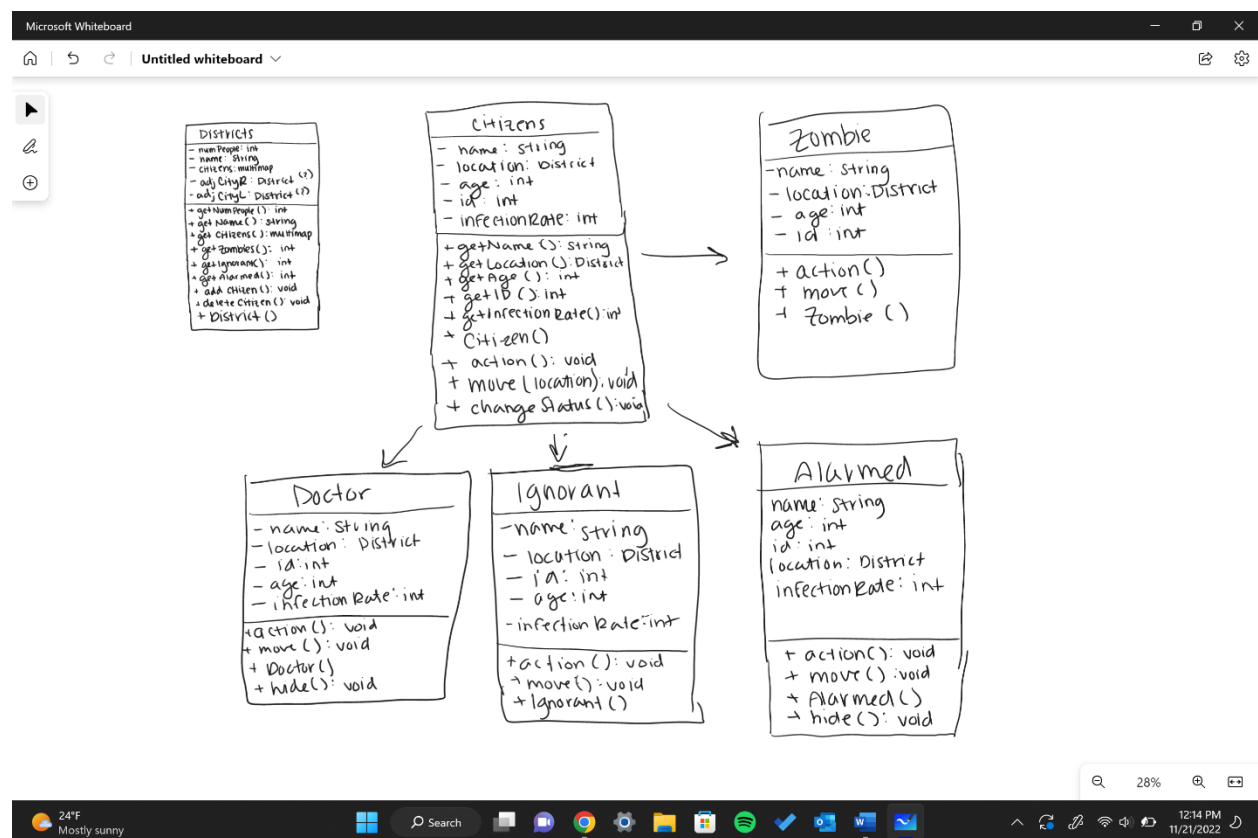 Microsoft Whiteboard
Untitled whiteboard
Districts
- numPeople: int
- name: String
- citizens: multimap
- adjCityR: District (?)
- adjCityL: District (?)
+ getNumPeople(): int
+ getName(): string
+ getCitizens(): multimap
+ getZombies(): int
+ getIgnorant(): int
+ getAlarmed(): int
+ addCitizen(): void
+ deleteCitizen(): void
+ District()
Citizens
- name: String
- location: District
- age: int
- id: int
- infectionRate: int
+ getName(): String
+ getLocation(): District
+ getAge(): int
+ getID(): int
+ getInfectionRate(): int
+ Citizen()
+ action(): void
+ move(location): void
+ changeStatus(): void
Zombie
- name: String
- location: District
- age: int
- id: int
+ action()
+ move()
+ Zombie()
Doctor
- name: String
- location: District
- id: int
- age: int
- infectionRate: int
+ action(): void
+ move(): void
+ Doctor()
+ hide(): void
Ignorant
- name: String
- location: District
- id: int
- age: int
- infectionRate: int
+ action(): void
+ move(): void
+ Ignorant()
Alarmed
name: String
age: int
id: int
location: District
infectionRate: int
+ action(): void
+ move(): void
+ Alarmed()
+ hide(): void
28%
24°F
Mostly sunny
Search
12:14 PM
11/21/2022